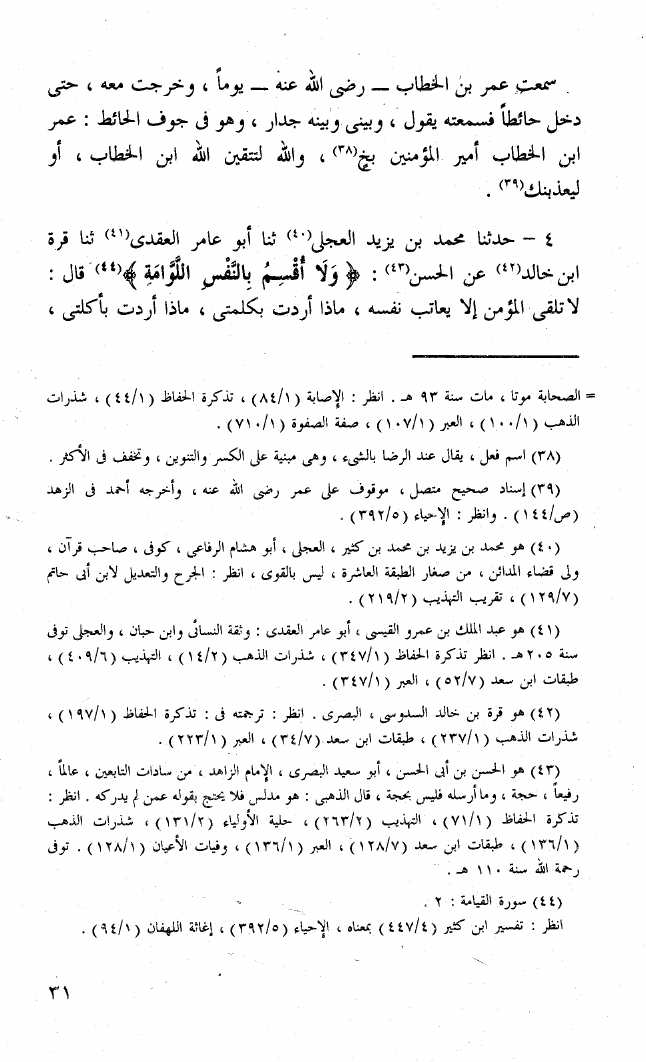 سمعت عمر بن الخطاب ــ رضى الله عنه ــ يوماً ، وخرجت معه ، حتى
دخل حائطاً فسمعته يقول ، وبينى وبينه جدار ، وهو فى جوف الحائط : عمر
ابن الخطاب أمير المؤمنين بخٍ(٣٨) ، والله لتتقين الله ابن الخطاب ، أو
ليعذبنك(٣٩) .
٤ – حدثنا محمد بن يزيد العجلى(٤٠) ثنا أبو عامر العقدى(٤١) ثنا قرة
ابن خالد(٤٢) عن الحسن(٤٣) : ﴿ وَلَا أُقْسِمُ بِالنَّفْسِ اللَّوَّامَةِ ﴾(٤٤) قال :
لا تلقى المؤمن إلا يعاتب نفسه ، ماذا أردت بكلمتى ، ماذا أردت بأكلتى ،
= الصحابة موتا ، مات سنة ٩٣ هـ . انظر : الإصابة (٨٤/١) ، تذكرة الحفاظ (٤٤/١) ، شذرات
الذهب (١٠٠/١) ، العبر (١٠٧/١) ، صفة الصفوة (٧١٠/١) .
(٣٨) اسم فعل ، يقال عند الرضا بالشىء ، وهى مبنية على الكسر والتنوين ، وتخفف فى الأكثر .
(٣٩) إسناد صحيح متصل ، موقوف على عمر رضى الله عنه ، وأخرجه أحمد فى الزهد
(ص/١٤٤) . وانظر : الإحياء (٣٩٢/٥) .
(٤٠) هو محمد بن يزيد بن محمد بن كثير ، العجلى ، أبو هشام الرفاعى ، كوفى ، صاحب قرآن ،
ولى قضاء المدائن ، من صغار الطبقة العاشرة ، ليس بالقوى ، انظر : الجرح والتعديل لابن أبى حاتم
(١٢٩/٧) ، تقريب التهذيب (٢١٩/٢) .
(٤١) هو عبد الملك بن عمرو القيسى ، أبو عامر العقدى : وثقة النسائى وابن حبان ، والعجلى توفى
سنة ٢٠٥ هـ . انظر تذكرة الحفاظ (٣٤٧/١) ، شذرات الذهب (١٤/٢) ، التهذيب (٤٠٩/٦) ،
طبقات ابن سعد (٥٢/٧) ، العبر (٣٤٧/١) .
(٤٢) هو قرة بن خالد السدوسى ، البصرى . انظر : ترجمته فى : تذكرة الحفاظ (١٩٧/١) ،
شذرات الذهب (٢٣٧/١) ، طبقات ابن سعد (٣٤/٧) ، العبر (٢٢٣/١) .
(٤٣) هو الحسن بن أبى الحسن ، أبو سعيد البصرى ، الإمام الزاهد ، من سادات التابعين ، عالماً ،
رفيعاً ، حجة ، وما أرسله فليس بحجة ، قال الذهبى : هو مدلس فلا يحتج بقوله عمن لم يدركه . انظر :
تذكرة الحفاظ (٧١/١) ، التهذيب (٢٦٣/٢) ، حلية الأولياء (١٣١/٢) ، شذرات الذهب
(١٣٦/١) ، طبقات ابن سعد (١٢٨/٧) ، العبر (١٣٦/١) ، وفيات الأعيان (١٢٨/١) . توفى
رحمة الله سنة ١١٠ هـ .
(٤٤) سورة القيامة : ٢ .
انظر : تفسير ابن كثير (٤٤٧/٤) بمعناه ، الإحياء (٣٩٢/٥) ، إغاثة اللهفان (٩٤/١) .
٣١